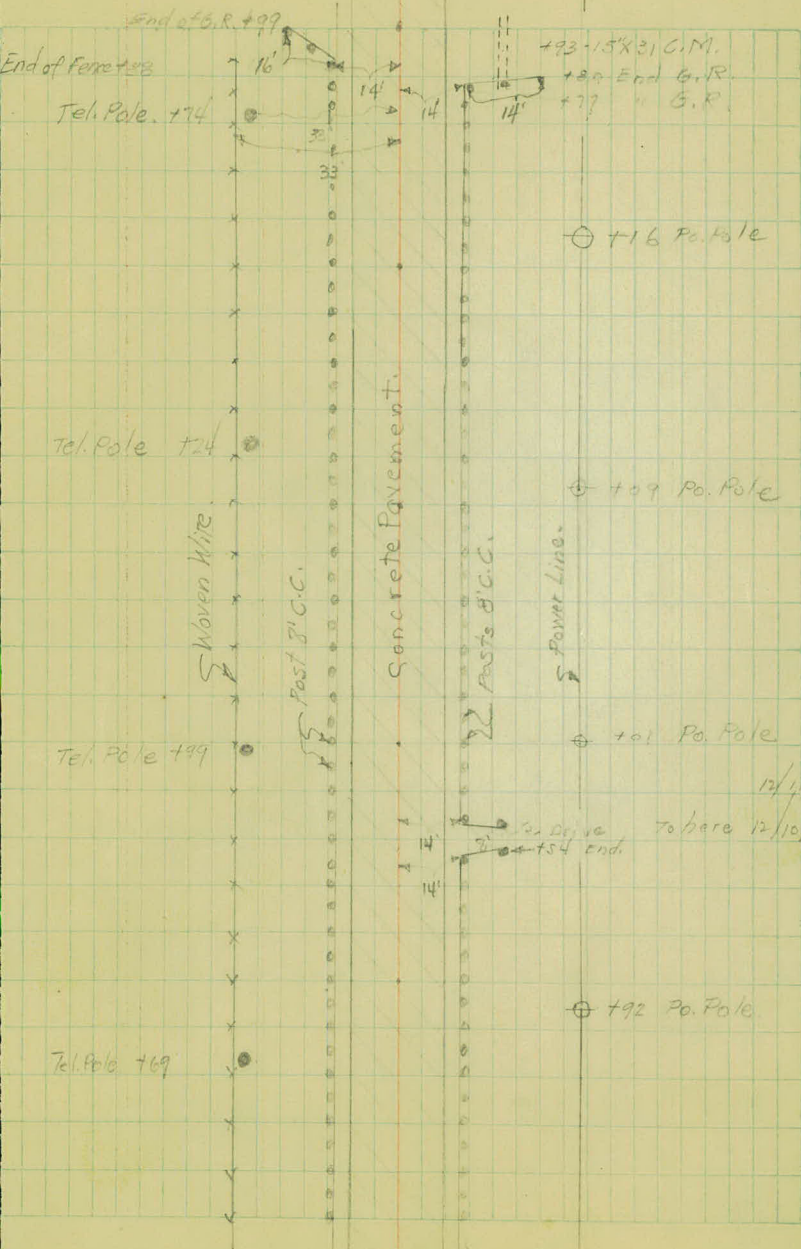 End of G.R. +99
End of Fence +88
16'
+93 - 15" X 31 C.M.
+80 End G.R.
+77 " G.R.
14'
14'
14'
Tel. Pole. +74
33
+16 Po. Pole
Tel. Pole +24
+09 Po. Pole
Woven Wire.
Post 8' C.C.
Concrete Pavement.
Posts 8' C.C.
Power Line.
Tel. Pole +99
+01 Po. Pole
To here 12/10
14'
+54 End.
14'
+92 Po. Pole
Tel. Pole +69